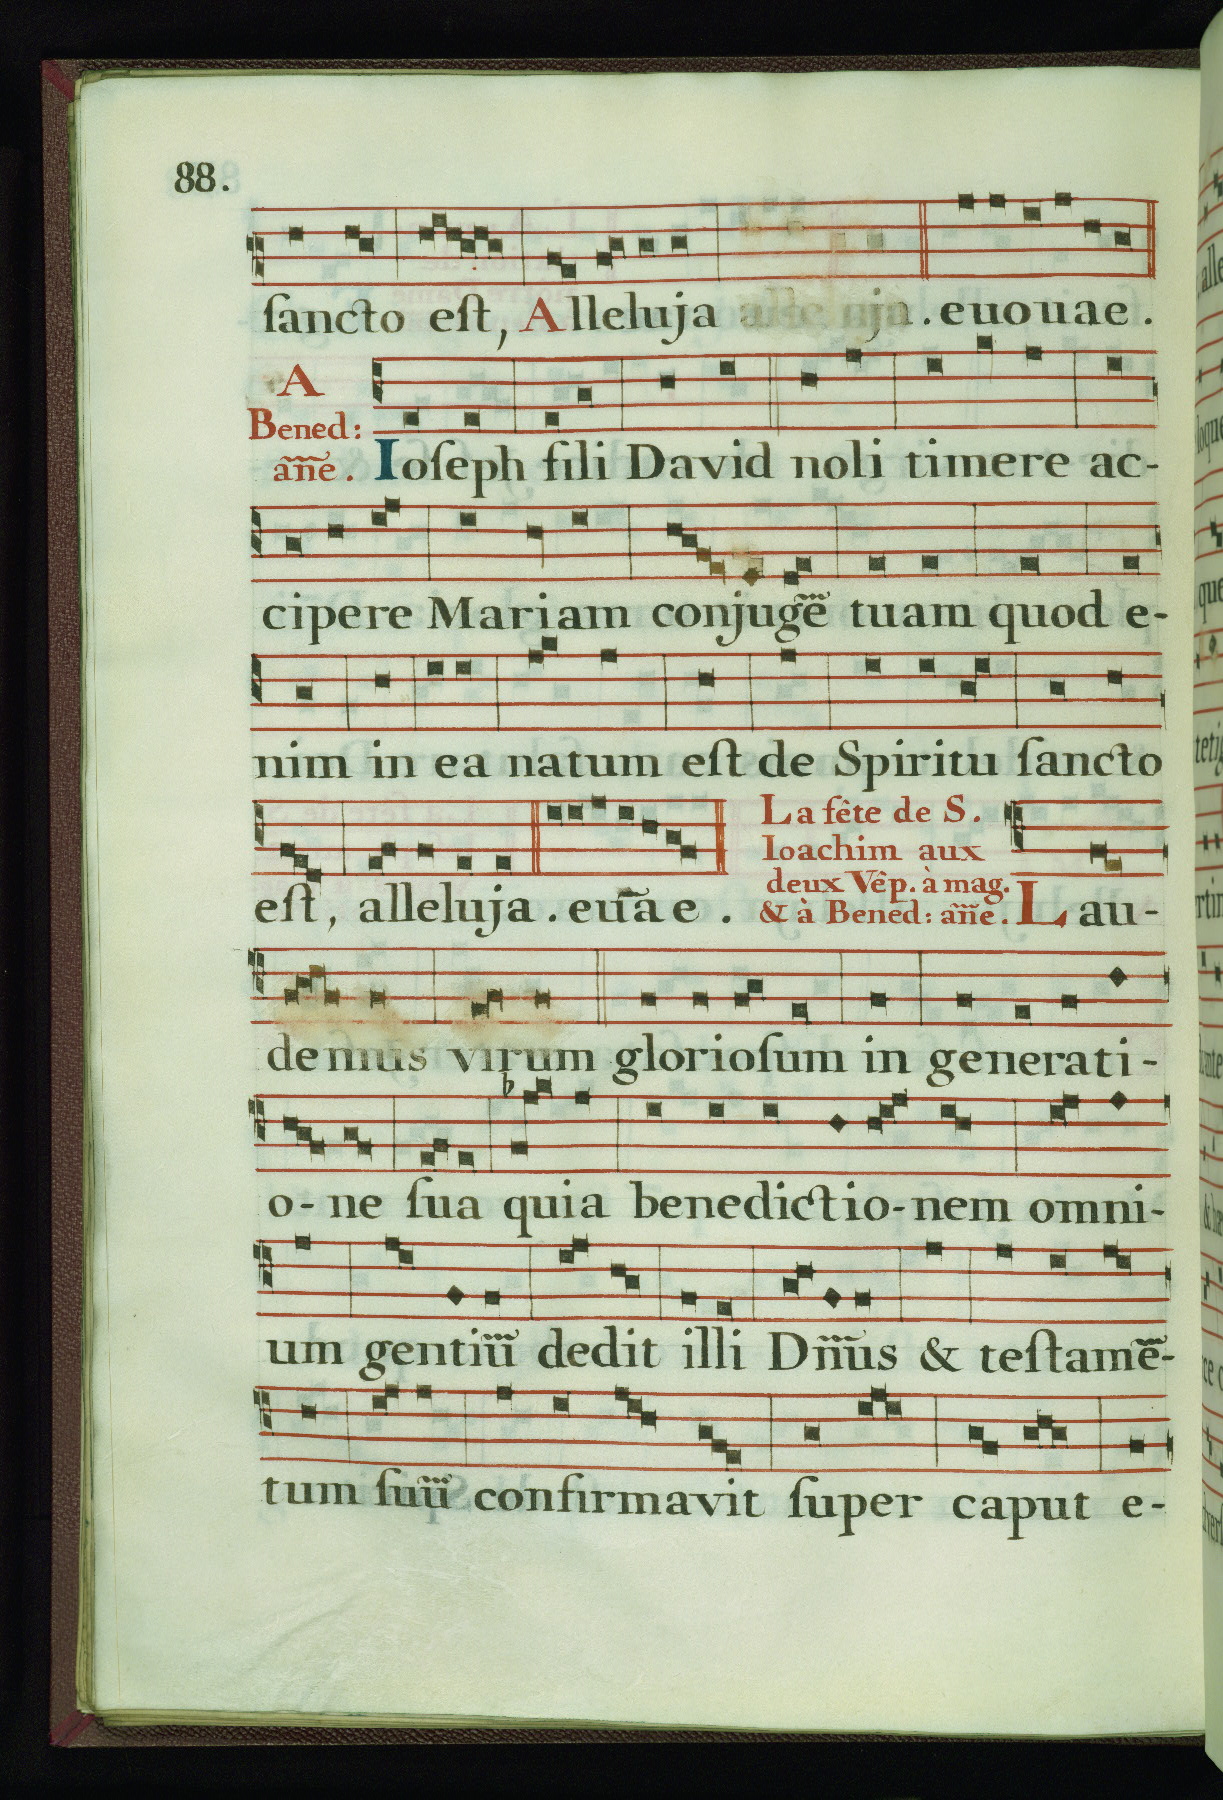 88.
ſancto eſt, Alleluja alleluja. euouae.
A
Bened:
añe. Ioſeph fili David noli timere ac-
cipere Mariam conjugẽ tuam quod e-
nim in ea natum eſt de Spiritu ſancto
La fête de S.
Ioachim aux
deux Vêp. à mag.
& à Bened: añe.
eſt, alleluja. eu͂ae. Lau-
demus virum glorioſum in generati-
o-ne ſua quia benedictio-nem omni-
um gentiũ dedit illi Dñus & teſtamẽ-
tum ſuũ confirmavit ſuper caput e-